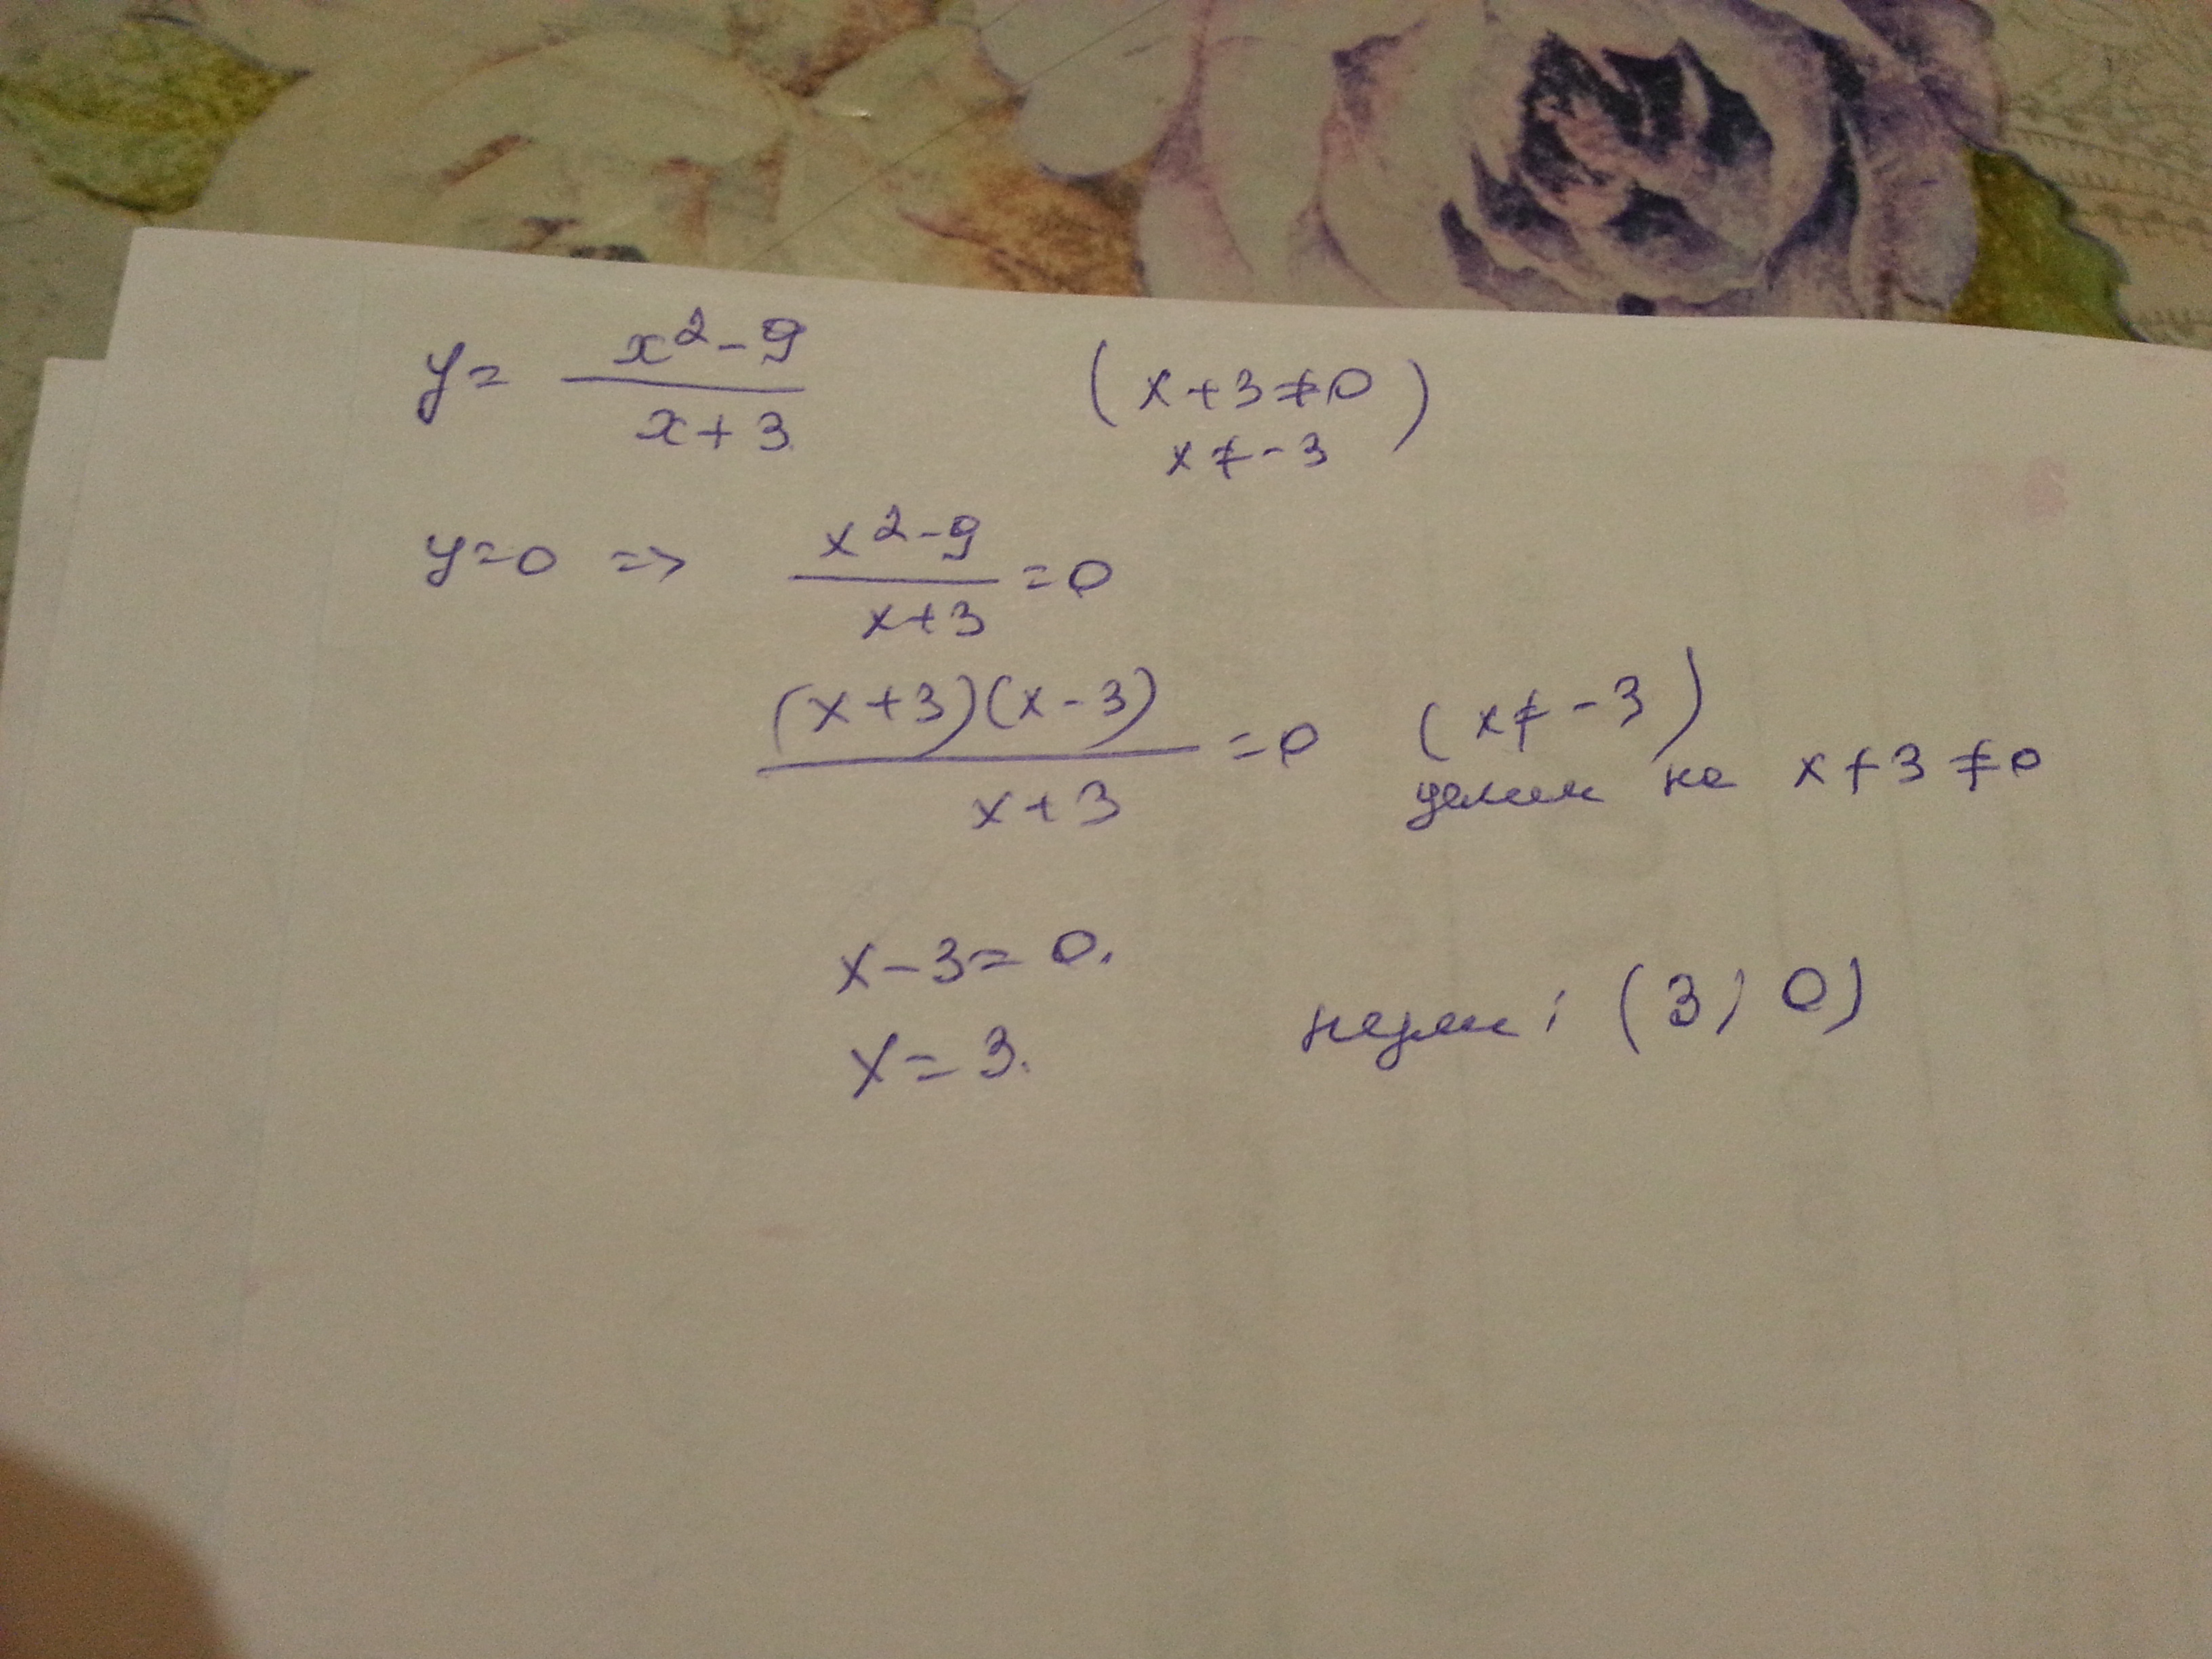 y = x² - 9 / x + 3 (x + 3 ≠ 0)
x ≠ -3
y = 0 => x² - 9 / x + 3 = 0
(x + 3)(x - 3) / x + 3 = 0 (x ≠ -3)
делим на x + 3 ≠ 0
x - 3 = 0.
x = 3. нули: (3; 0)